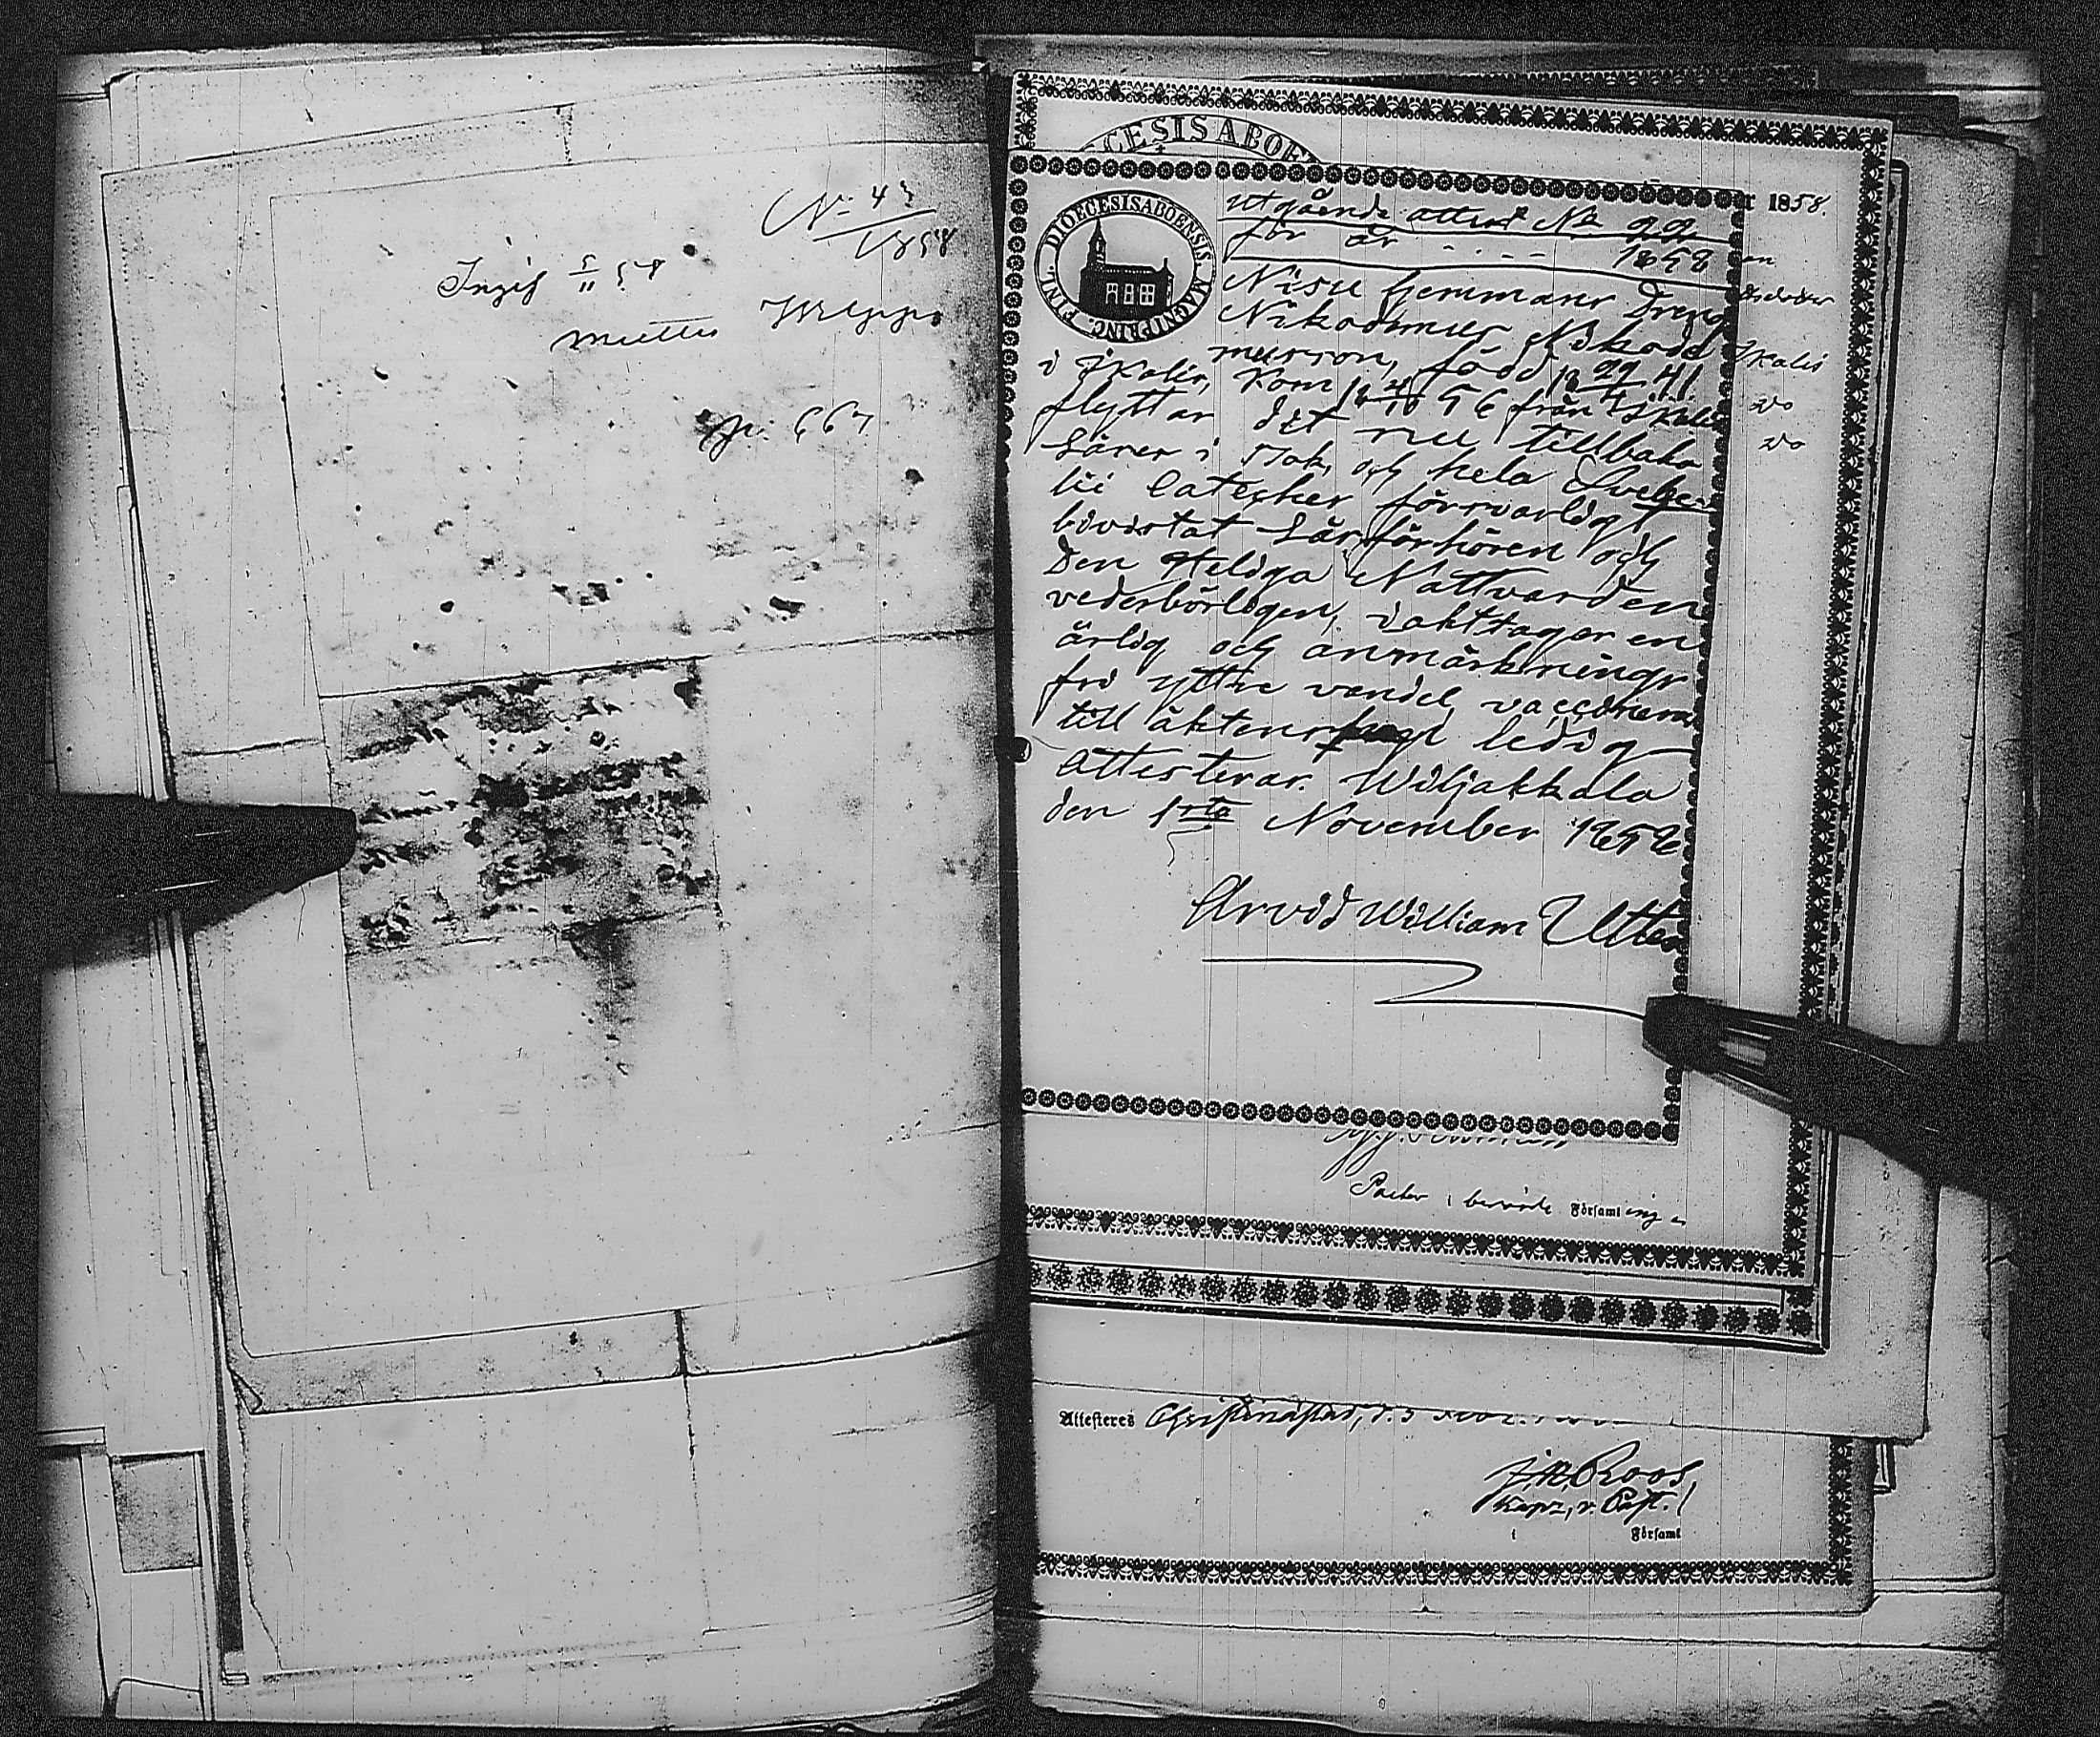 No 43
1858
Ingif 5/11 58
p: 667
CESIS ABOE
r 1858.
FINL. DIOECESIS ABOENSIS. MAGNI PRINC.
utgående attest No 22
för år . . - - 1858
Nisu hemmans Dreng
Nikodemus Nikode
musson, född 18 29/4 41
i Ikalis, kom 18 4/10 56 från Ikalis
flyttar dit nu tillbaka
Läser i Bok, och hela Svebe
lii Catecher försvarligt
bivistat Läsförhören och
Den Heliga Nattvarden
vederbörligen, iakttager en
ärlig och anmärknings
fri yttre vandel, vaccinera
till äktenskap ledig
Attesterar. Wiljakkala
den 1sta November 1858
Arvid William
Ikalis
do
do
Pastor i berörde Församling
Attesteres Christinæstad, d. 3
Roos
Kapl, v. Past.
i Församl